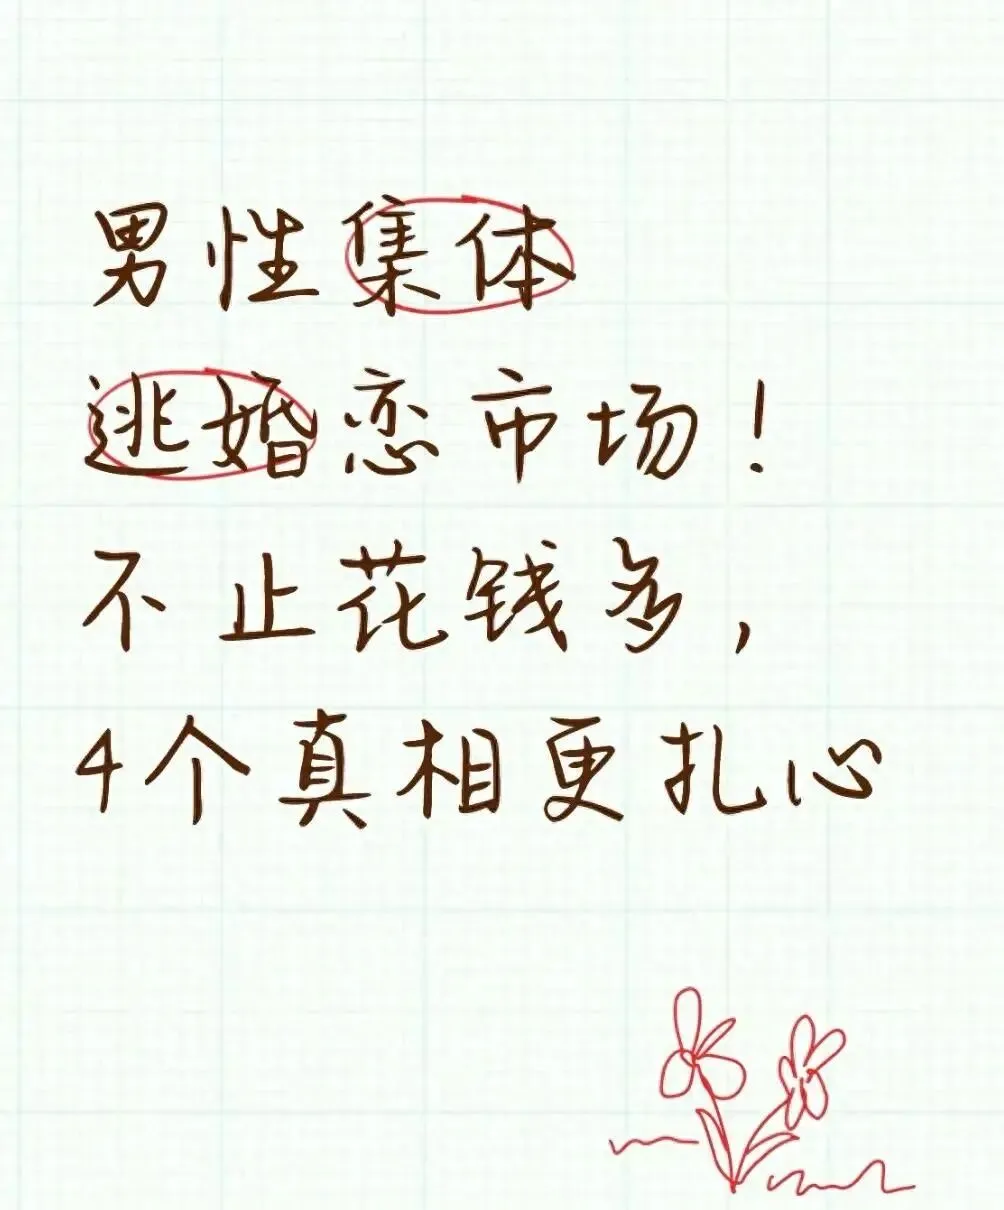 男性集体
逃婚恋市场！
不止花钱多，
4个真相更扎心